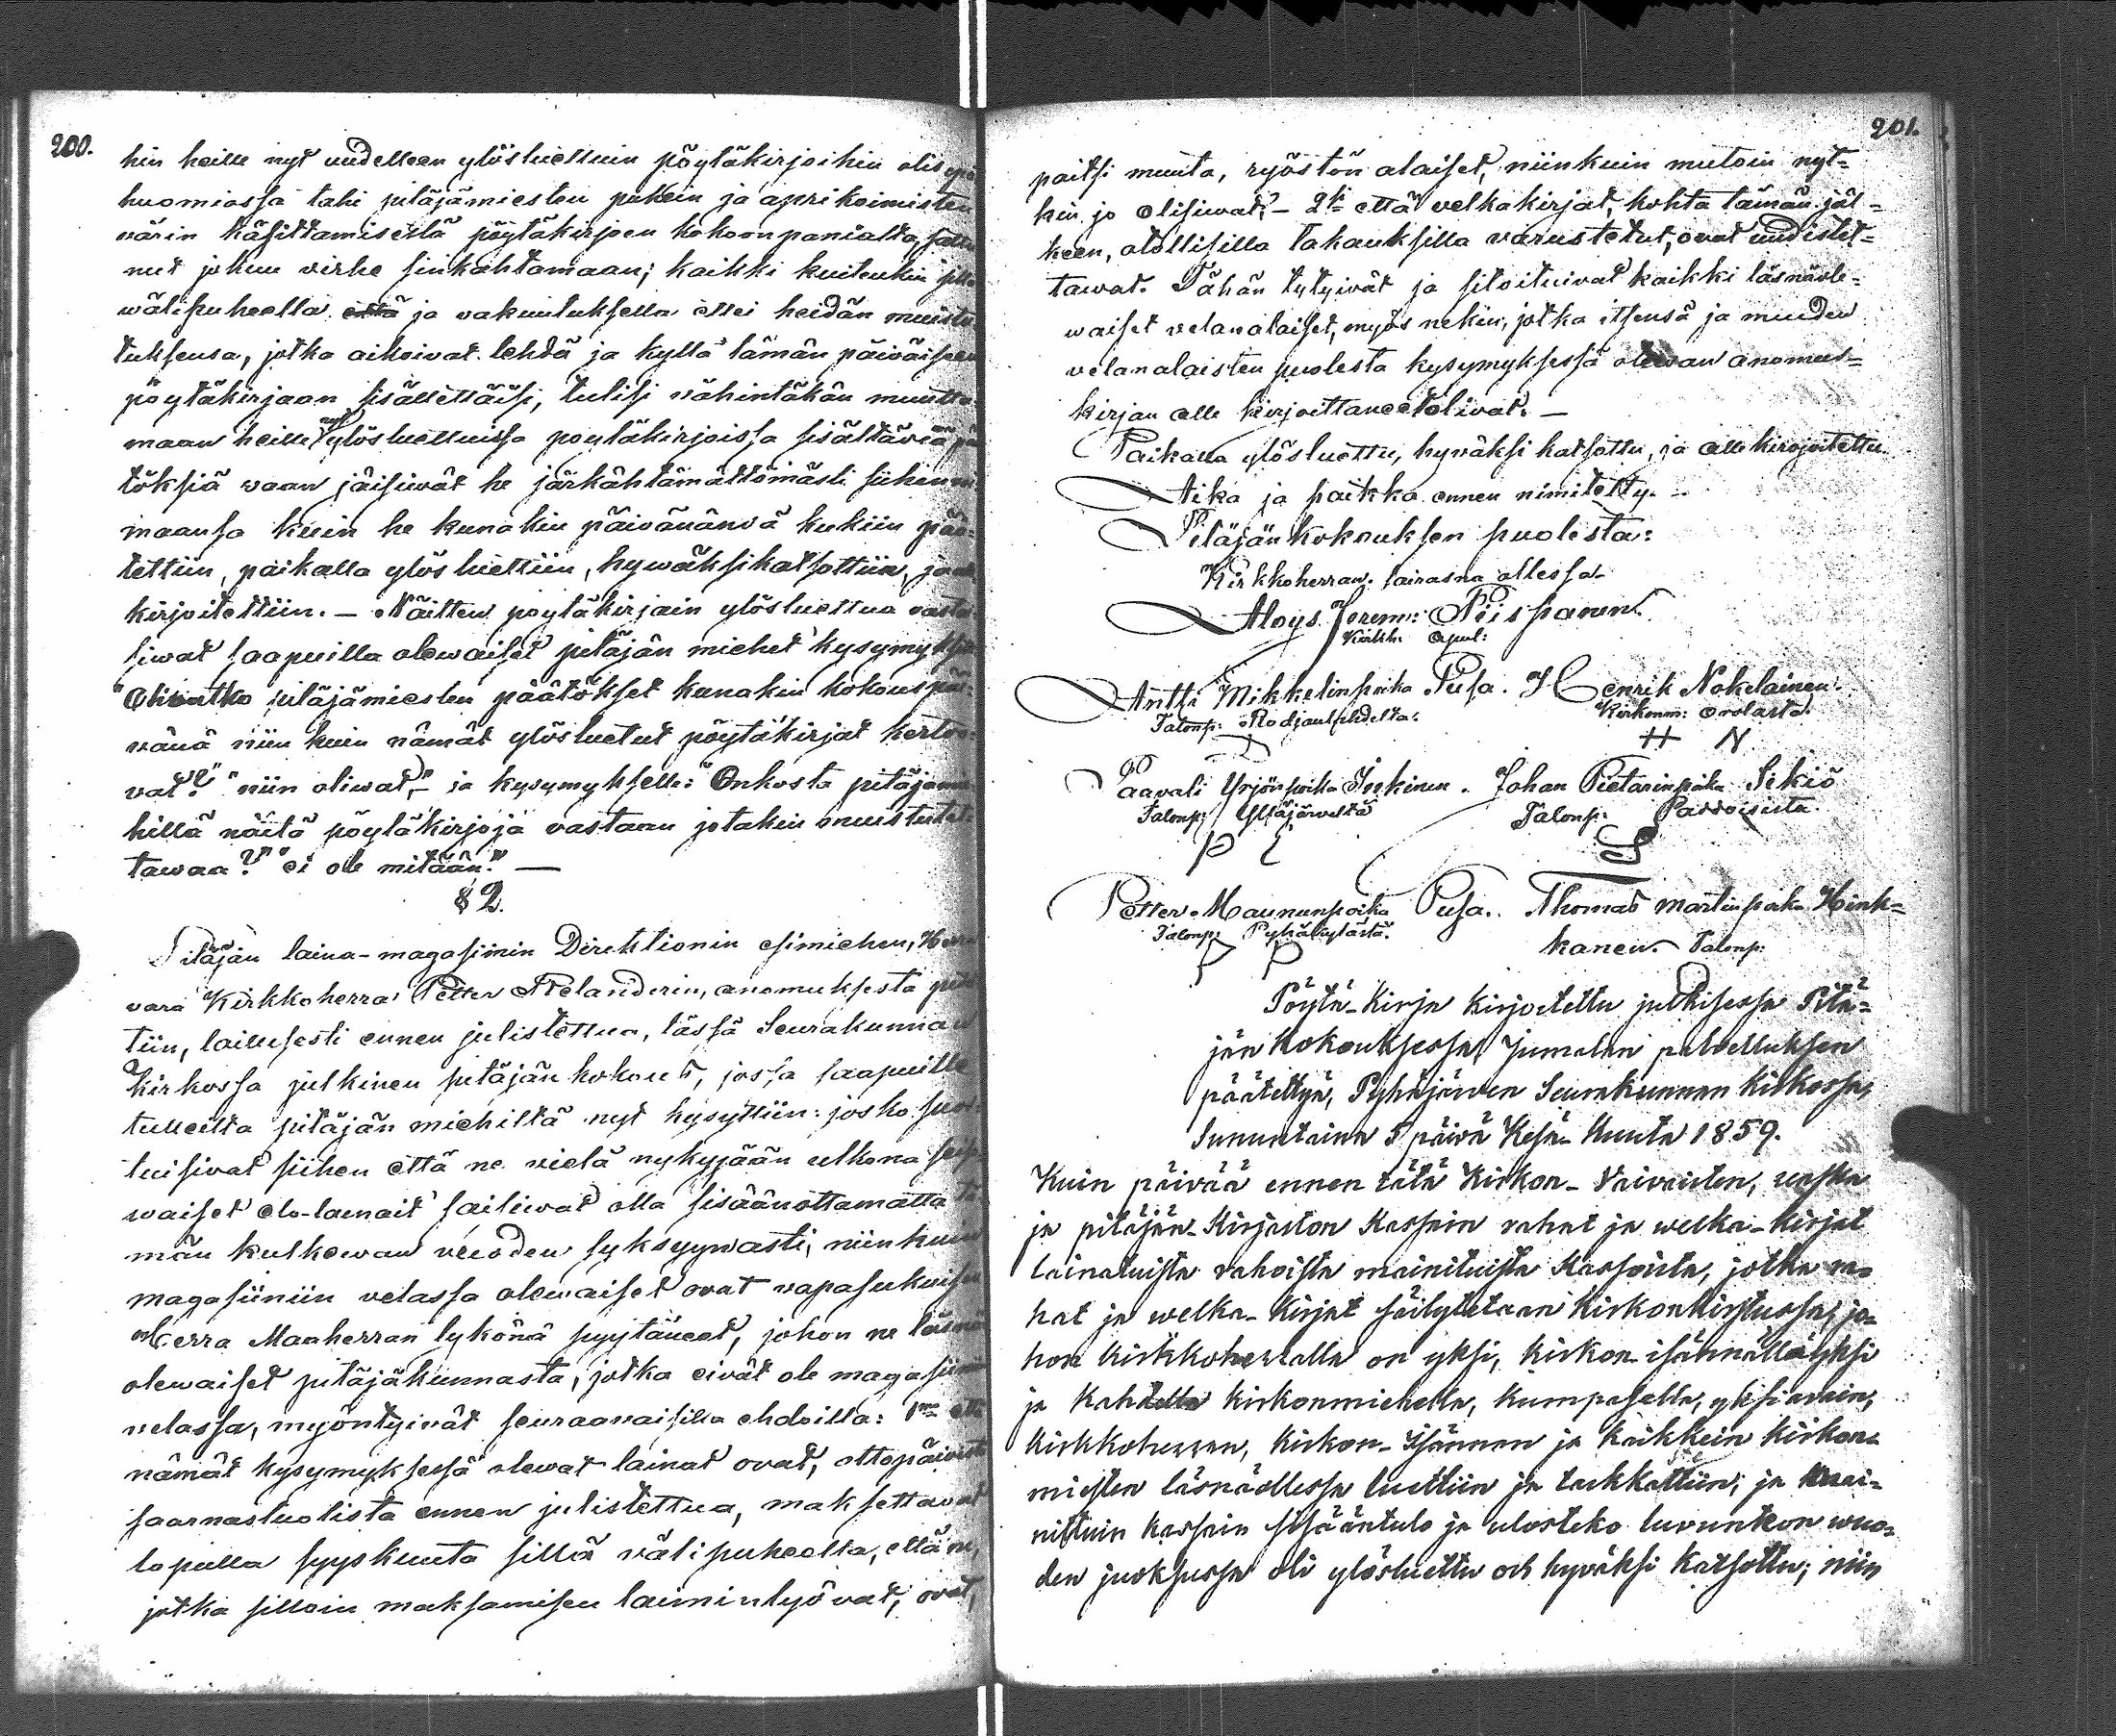 200.
hin heille nyt uudelleen ylösluettuin pöytäkirjoihin olis
huomiossa tahi pitäjämiesten puhein ja aprikoimisten
värin käsittamisellä pöytäkirjoen kokoonpanialta,
nut johun virhe sinkahtamaan; kaikki kuitenkin
wälipuheella että ja vakuutuksella ettei heidän
tuksensa, jotka aikoivat tehdä ja kyllä tämän päiväisen
pöytäkirjaan sisällettäisi, tulisi vähintäkän muutta
maan heille nyt ylösluettuissa poytäkirjoissa sisältäviä
töksiä vaan jäisiwät he järkähtämättömästi siihen
maansa kuin he kunakin päivänänsä kukiin pää-
tettiin, paikalla ylös luettiin, hywäksikatsottiin, ja
kirjoitettiin. – Näitten poytäkirjain ylösluettua vasta
siwat saapuilla olewaiset pitäjän miehet kysymykse
"Oliwatko pitäjämiesten päätökset kunakin kokouspäi-
vänä niin kuin nämät ylösluetut pöytäkirjat kertoo-
vat?" "niin oliwat", – ja kysymykselle: "Onkosta pitäjämie
hillä näitä pöytäkirjoja vastaan jotakin muistutet-
tawaa?" "ei ole mitään." —
§ 2.
Pitäjän laina-magasinin Direktionin esimiehen, Herra
vara Kirkkoherra Petter Melanderin, anomuksesta
tiin, laillisesti ennen julistettua, tässä Seurakunnan
kirkossa julkinen pitäjän kokous, jossa saapuille
tulleilta pitäjän miehiltä nyt kysyttiin: josko suos-
tuisivat siihen että ne vielä nykyjään ulkona
waiset elo-lainait saisiwat olla sisäänottamatta tä
män kulkewan vuoden syksyywasti, niinkuin
magasiiniin velassa olewaiset ovat
Herra Maaherran tykönä pyytäneet, johon ne läsnä
olewaiset pitäjäkunnasta, jotka eivät ole magasiinin
velassa, myöntyivät seuraavaisilla ehdoilla: 1mo että
nämät kysymyksessä olewat lainat ovat, ottopäivistä
saarnastuolista ennen julistettua, maksettavat
lopulla syyskuuta sillä välipuheella, että ne,
jotka silloin maksamisen laiminlyövat, ovat,
201.
paitsi muuta, ryöstön alaiset, niinkuin mutoin nyt-
kin jo olisiwat; – 2ksi että velkakirjat, kohta tämän jäl-
keen, otollisilla takauksilla varustetut, ovat uudistet-
tawat. Tähän tytyivät ja sitoituivat kaikki läsnäole-
waiset velanalaiset, myös nekin, jotka itsensä ja muiden
velanalaisten puolesta kysymyksessä olewan anomus-
kirjan alle kirjoittaneet olivat. —
Paikalla ylösluettu, hyväksi katsottu, ja allekirjoitettu.
Aika ja paikka ennen nimitetty. –
Pitäjän kokouksen puolesta:
Kirkkoherran sairasna ollessa
Aloys. Jerem: Piispanen.
Kirkh. Apul:
Antti Mikkelinpoika Pusa. Henrik Nokelainen.
Talonp: Kirkonm:
H N
Paavali Yrjönpoika Inkinen. Johan Pietarinpoika Sikiö
Talonp: Ylläjärveltä Talonp:
P I S
Petter Maununpoika Pusa. Thomas Martinpoika Hink-
Talonp: Pyhäkylästä. kanen. Talonp:
P P
Pöytä-Kirja Kirjoitettu julkisessa Pitä-
jän Kokouksessa, Jumalan palvelluksen
päätettyä, Pyhäjärven Seurakunnan Kirkossa,
Sununtaina 5 päivä Kesä-Kuuta 1859.
Kuin päivää ennen tätä Kirkon- Vaivaisten, rustu
ja pitäjän-Kirjaston Kassain rahat ja welka-Kirjat
lainatuista rahoista mainituista Kassoista, jotka ra-
hat ja welka-Kirjat säilytetaan Kirkonkirstussa, jo-
hon Kirkkoherralla on yksi, Kirkon-isännällä yksi
ja Kahdella Kirkonmiehella, kumpasella, yksi avain,
Kirkkoherran, Kirkon-Isännan ja kaikkein Kirkon-
miesten läsnäollessa luettiin ja tarkkattiin; ja mai-
nittuin Kassain sisääntulo ja ulosteko luvunkon wuo-
den juoksussa oli ylösluettu och hyväksi Katsottu; niin